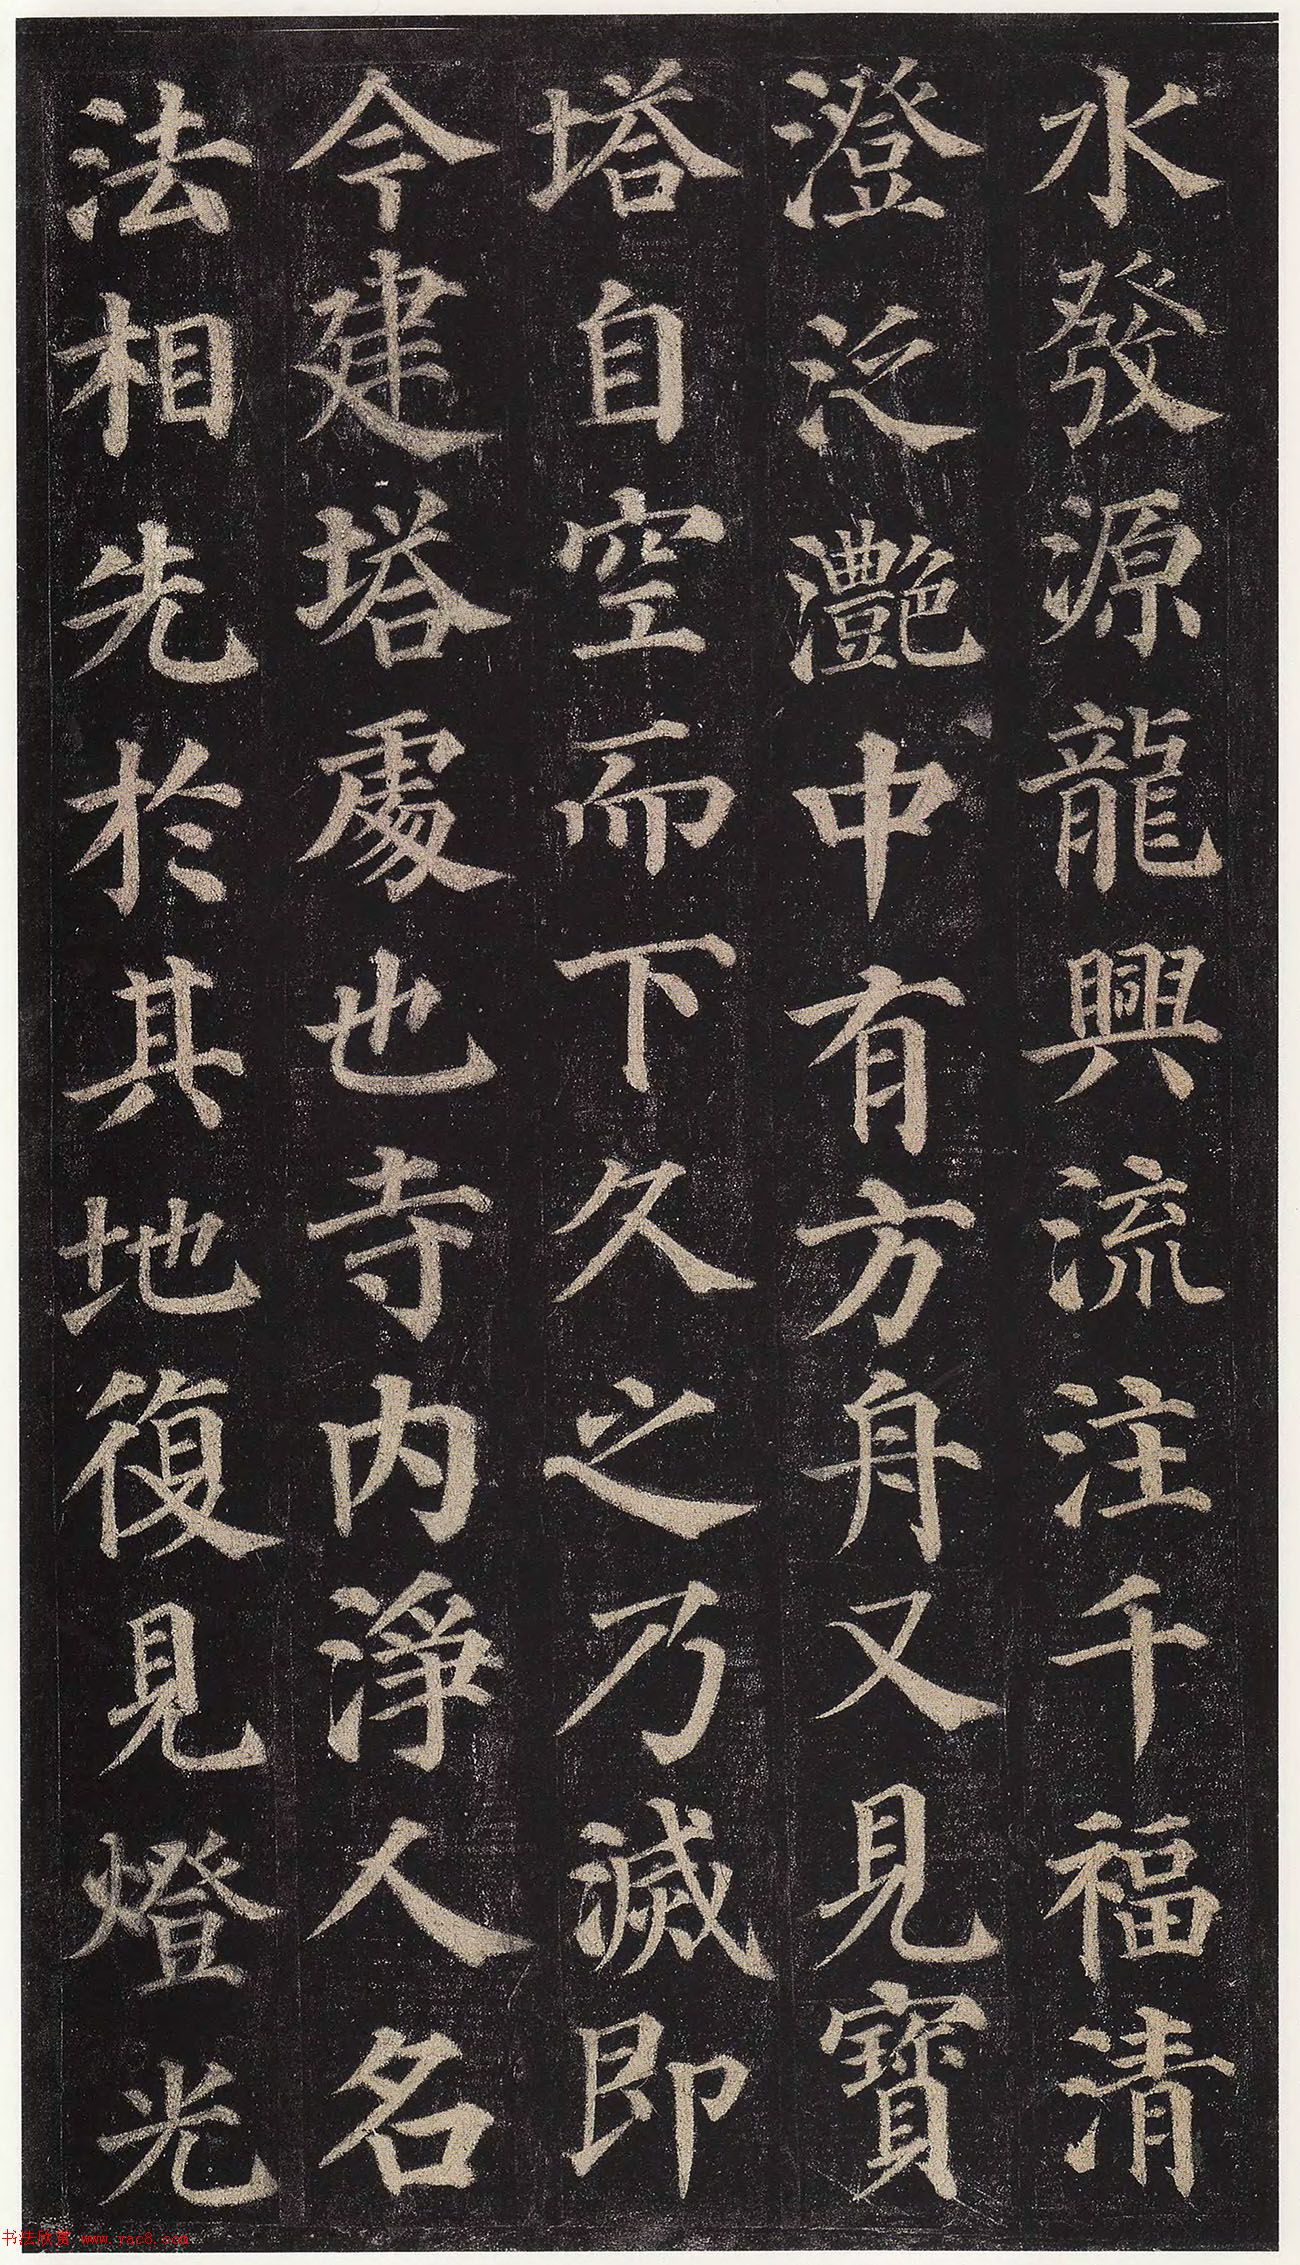 水發源龍興流注千福清
澄泛灩中有方舟又見寶
塔自空而下久之乃滅即
今建塔處也寺内淨人名
法相先於其地復見燈光
书法欣赏 www.yac8.com